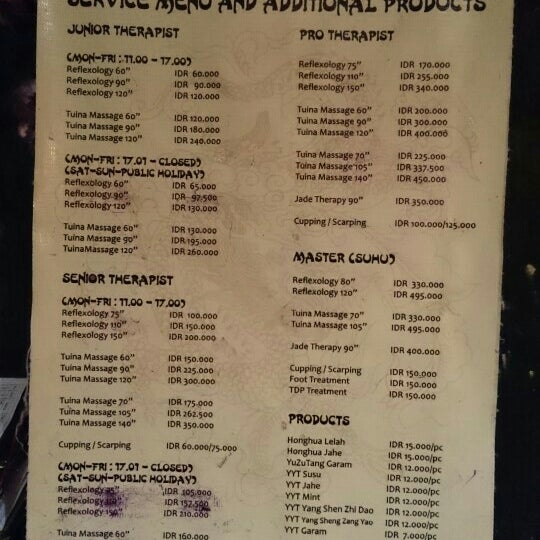 SERVICE MENU AND ADDITIONAL PRODUCTS
JUNIOR THERAPIST
(MON-FRI : 11.00 - 17.00)
Reflexology 60" IDR 60.000
Reflexology 90" IDR 90.000
Reflexology 120" IDR 120.000
Tuina Massage 60" IDR 120.000
Tuina Massage 90" IDR 180.000
Tuina Massage 120" IDR 240.000
(MON-FRI : 17.01 - CLOSED)
(SAT-SUN-PUBLIC HOLIDAY)
Reflexology 60" IDR 65.000
Reflexology 90" IDR 97.500
Reflexology 120" IDR 130.000
Tuina Massage 60" IDR 130.000
Tuina Massage 90" IDR 195.000
TuinaMassage 120" IDR 260.000
SENIOR THERAPIST
(MON-FRI : 11.00 - 17.00)
Reflexology 75" IDR 100.000
Reflexology 110" IDR 150.000
Reflexology 150" IDR 200.000
Tuina Massage 60" IDR 150.000
Tuina Massage 90" IDR 225.000
Tuina Massage 120" IDR 300.000
Tuina Massage 70" IDR 175.000
Tuina Massage 105" IDR 262.500
Tuina Massage 140" IDR 350.000
Cupping / Scarping IDR 60.000/75.000
(MON-FRI : 17.01 - CLOSED)
(SAT-SUN-PUBLIC HOLIDAY)
Reflexology 75" IDR 105.000
Reflexology IDR 157.500
Reflexology 150" IDR 210.000
Tuina Massage 60" IDR 160.000
PRO THERAPIST
Reflexology 75" IDR 170.000
Reflexology 110" IDR 255.000
Reflexology 150" IDR 340.000
Tuina Massage 60" IDR 200.000
Tuina Massage 90" IDR 300.000
Tuina Massage 120" IDR 400.000
Tuina Massage 70" IDR 225.000
Tuina Massage 105" IDR 337.500
Tuina Massage 140" IDR 450.000
Jade Therapy 90" IDR 350.000
Cupping / Scarping IDR 100.000/125.000
MASTER (SUHU)
Reflexology 80" IDR 330.000
Reflexology 120" IDR 495.000
Tuina Massage 70" IDR 330.000
Tuina Massage 105" IDR 495.000
Jade Therapy 90" IDR 400.000
Cupping / Scarping IDR 150.000
Foot Treatment IDR 150.000
TDP Treatment IDR 150.000
PRODUCTS
Honghua Lelah IDR 15.000/pc
Honghua Jahe IDR 15.000/pc
YuZuTang Garam IDR 12.000/pc
YYT Susu IDR 12.000/pc
YYT Jahe IDR 12.000/pc
YYT Mint IDR 12.000/pc
YYT Yang Shen Zhi Dao IDR 12.000/pc
YYT Yang Sheng Zang Yao IDR 12.000/pc
YYT Garam IDR 7.000/pc